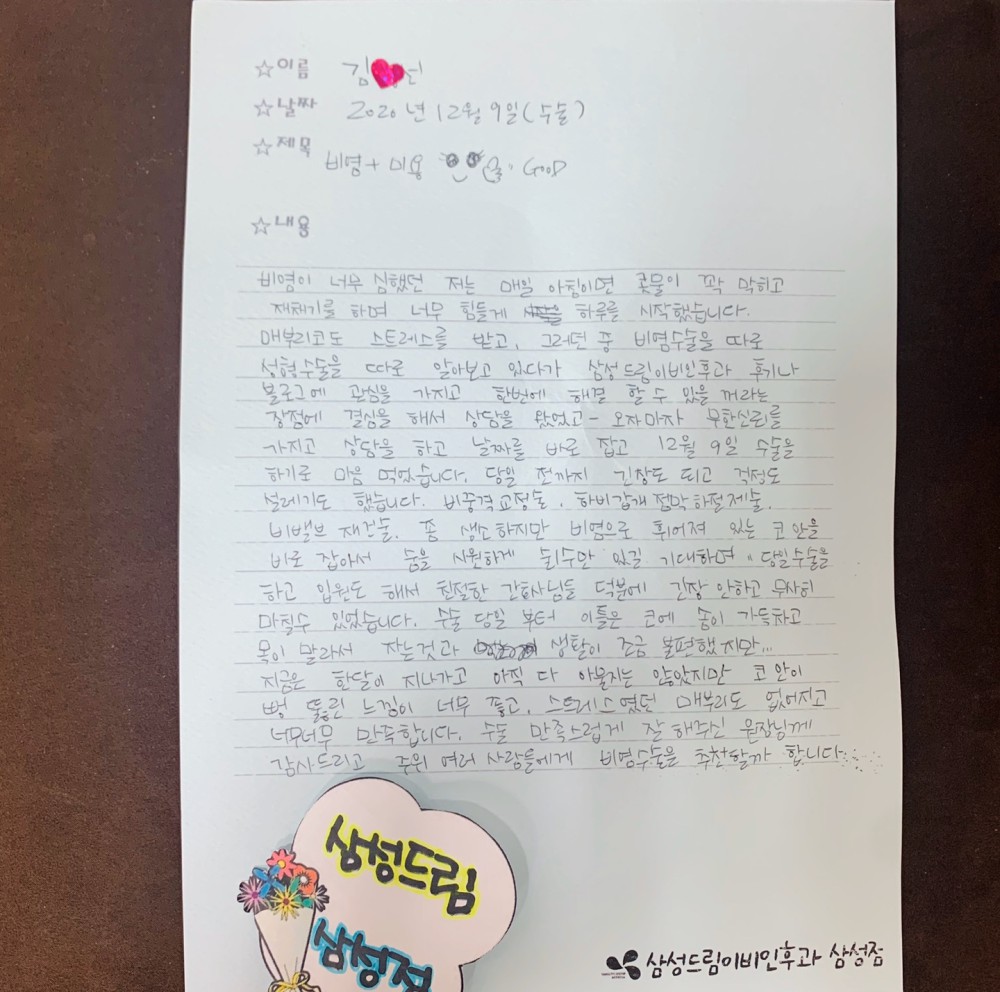 ☆이름 김
☆날짜 2020년 12월 9일(수술)
☆제목 비염+미용 GOOD
☆내용
비염이 너무 심했던 저는 매일 아침이면 콧물이 꽉 막히고
재채기를 하며 너무 힘들게 하루를 시작했습니다.
매부리코도 스트레스를 받고, 그러던 중 비염수술을 따로
성형수술을 따로 알아보고 있다가 삼성드림이비인후과 후기나
블로그에 관심을 가지고 한번에 해결 할 수 있을 꺼라는
장점에 결심을 해서 상담을 왔었고- 오자마자 무한신뢰를
가지고 상담을 하고 날짜를 바로 잡고 12월 9일 수술을
하기로 마음 먹었습니다. 당일 전까지 긴장도 되고 걱정도
설레기도 했습니다. 비중격교정술, 하비갑개 점막하절제술,
비밸브 재건술. 좀 생소하지만 비염으로 휘어져 있는 코 안을
바로 잡아서 숨을 시원하게 쉴수만 있길 기대하며 당일수술을
하고 입원도 해서 친절한 간호사님들 덕분에 긴장 안하고 무사히
마칠수 있었습니다. 수술 당일 부터 이틀은 코에 솜이 가득차고
목이 말라서 자는것과 생활이 조금 불편했지만...
지금은 한달이 지나가고 아직 다 아물지는 않았지만 코 안이
뻥 뚫린 느낌이 너무 좋고, 스트레스였던 매부리도 없어지고
너무너무 만족합니다. 수술 만족스럽게 잘 해주신 원장님께
감사드리고 주위 여러 사람들에게 비염수술을 추천할까 합니다
삼성드림
삼성점
삼성드림이비인후과 삼성점